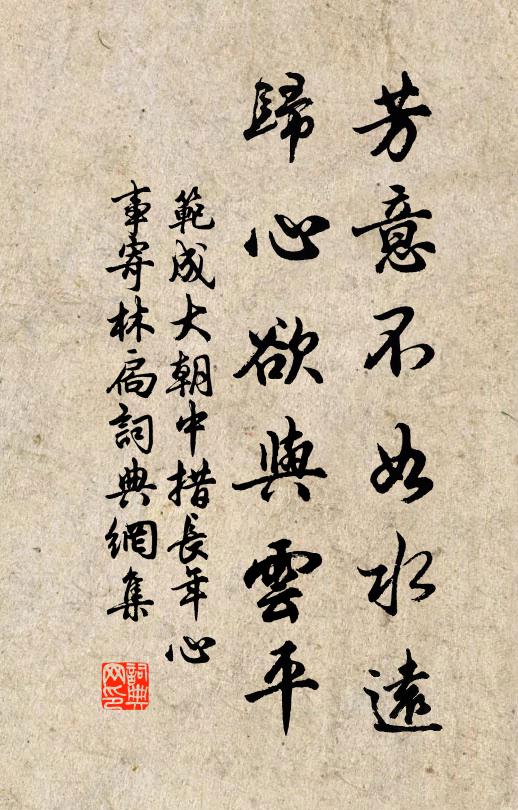 芳意不如水遠
歸心欲與雲平
範成大朝中措長年心
事寄林扃詞典網集
詞典网印